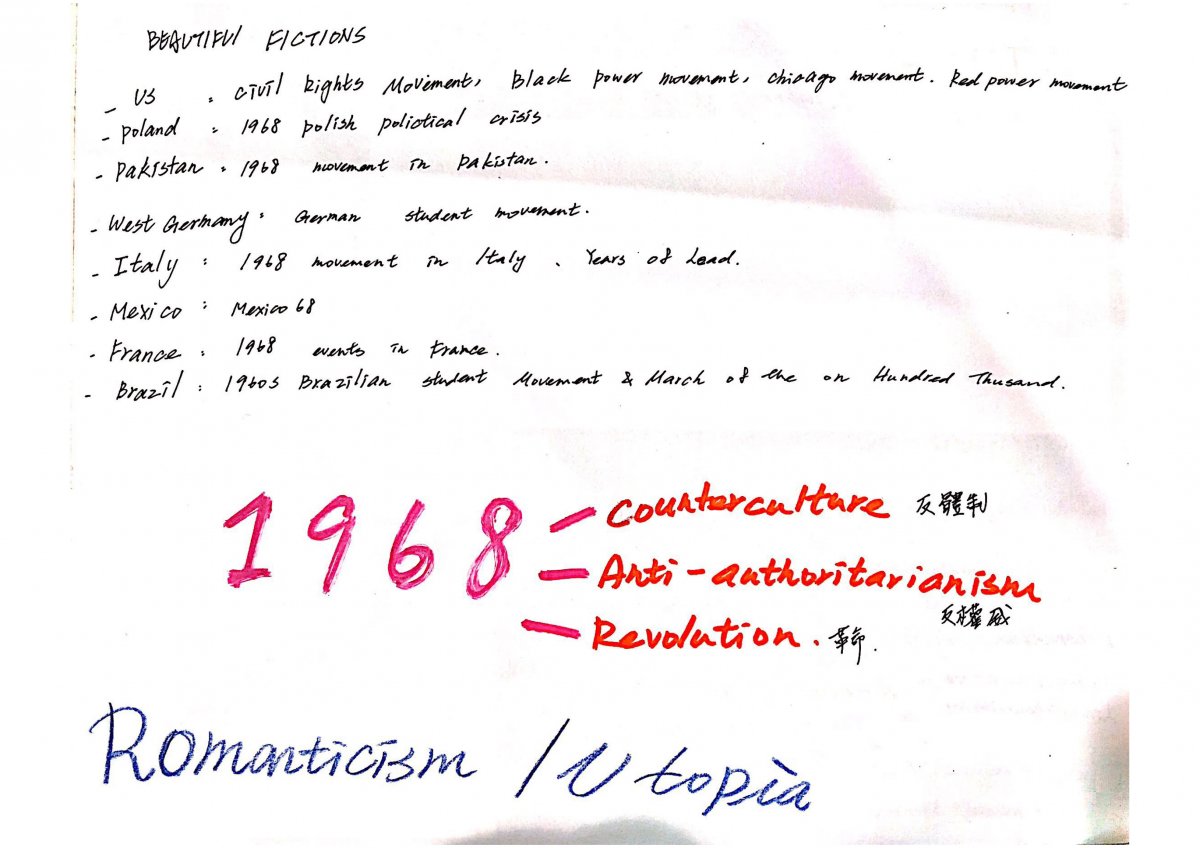 BEAUTIFUl FICTIONS
- US : civil Rights Movement, Black power movement, chicago movement. Red power movement
- poland : 1968 polish polictical crisis
- pakistan : 1968 movement in pakistan.
- West Germany : German student movement.
- Italy : 1968 movement in Italy 、 Years of Lead.
- Mexico : Mexico 68
- France : 1968 events in France.
- Brazil : 1960s Brazilian student Movement & March of the on Hundred Thusand.
1968 - Counterculture 反體制
- Anti-authoritarianism
反權威
- Revolution. 革命.
Romanticism / Utopia